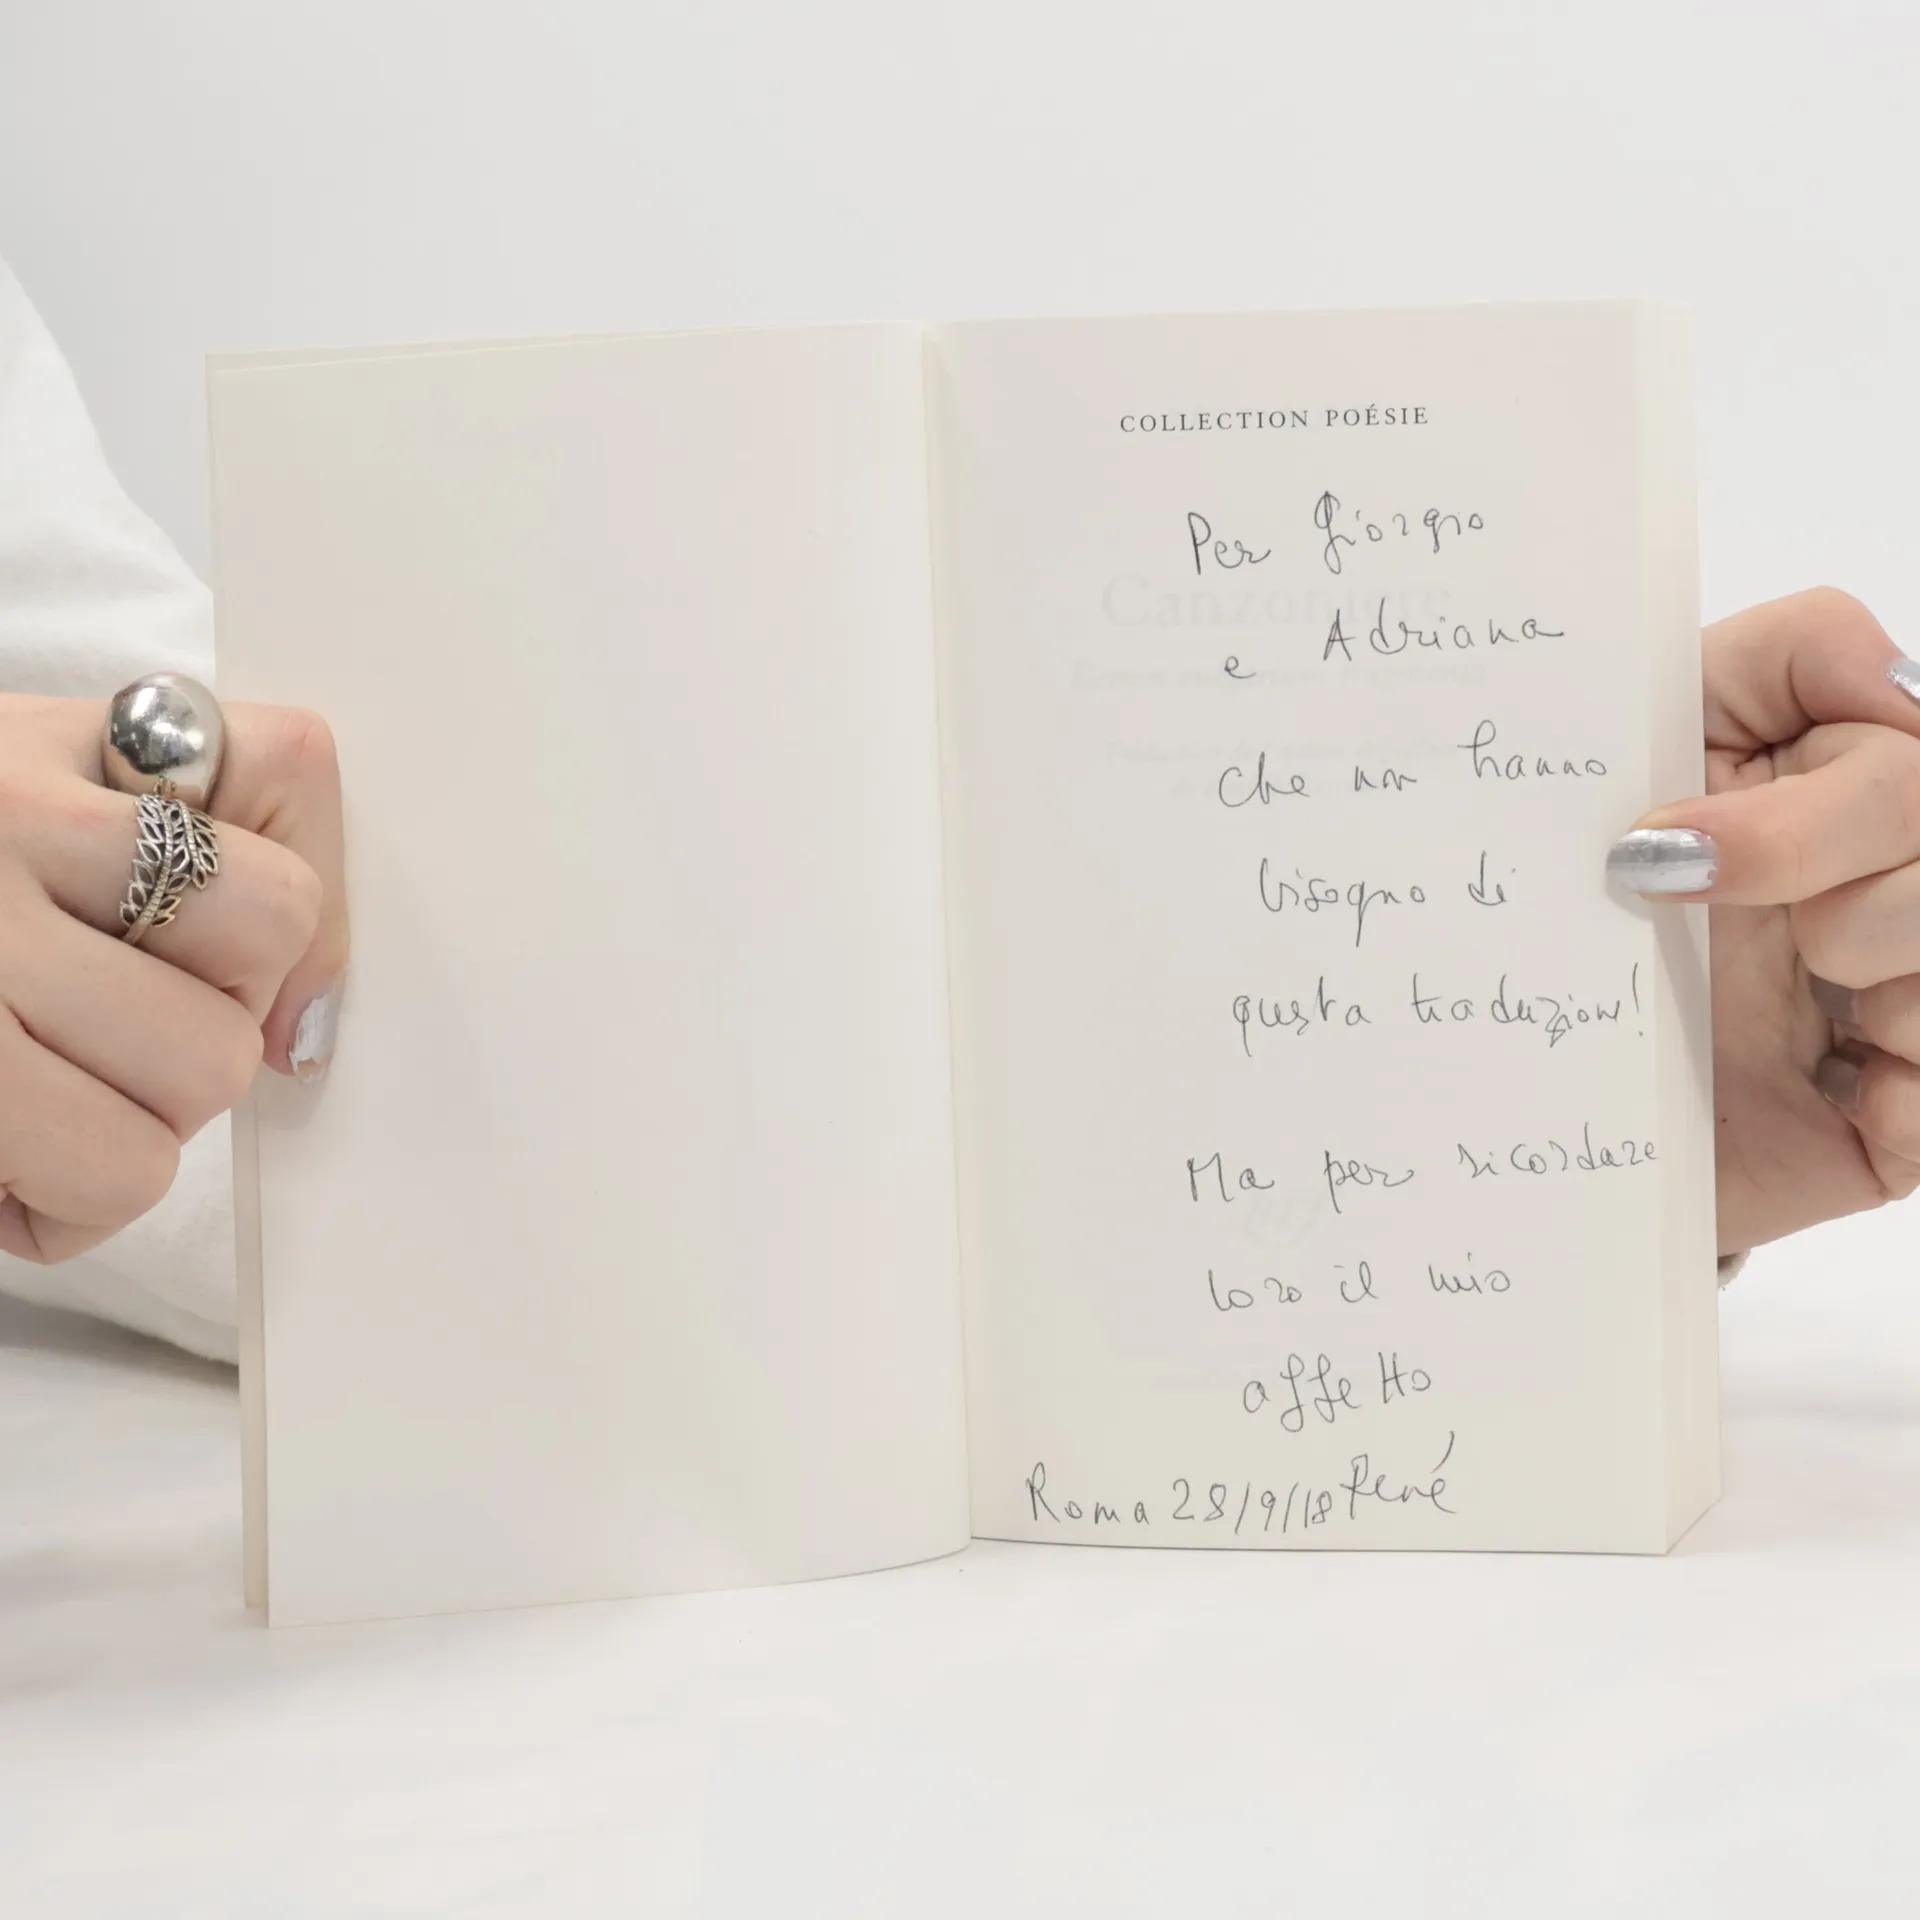 COLLECTION POÉSIE
Per Giorgio
e Adriana
che non hanno
bisogno di
questa traduzione!
Ma per ricordare
loro il mio
affetto
Roma 28/9/18 René
Canzoniere